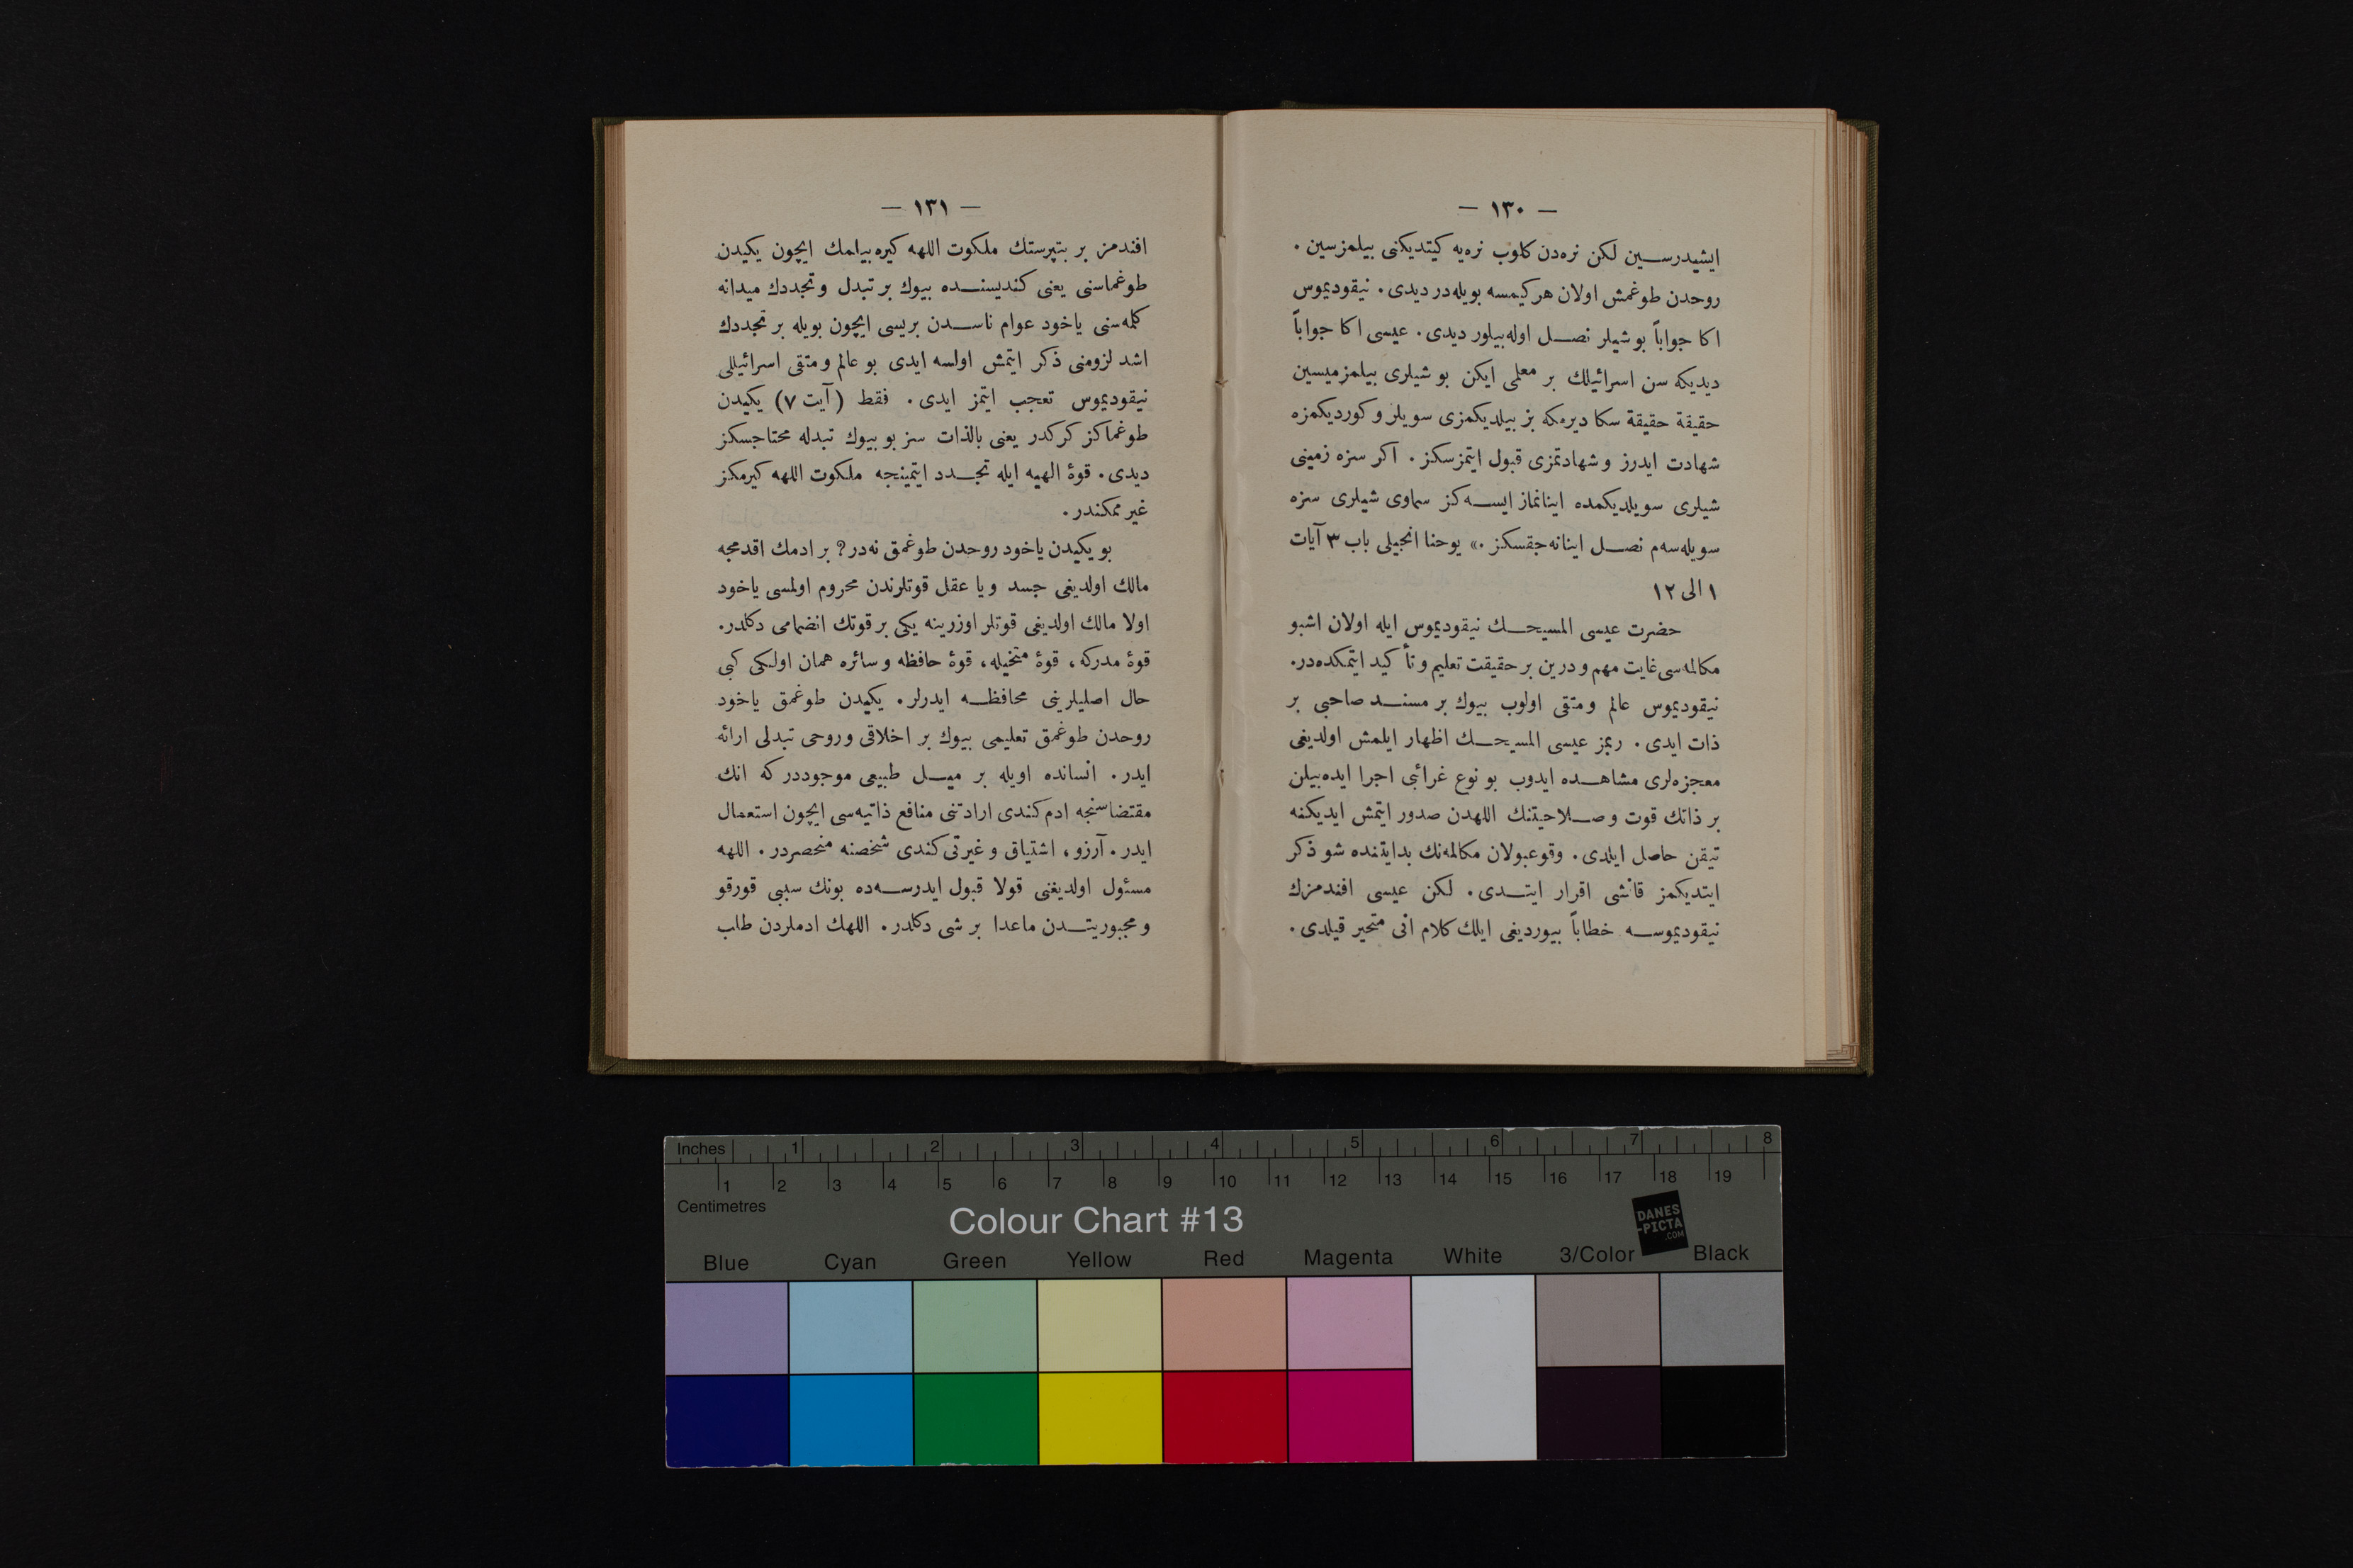 — ١٣٠ —
ایشیدرسین لكن نره‌دن كلوب نره‌یه كیتدیكنی بیلمزسین .
روحدن طوغمش اولان هر كیمسه بویله‌در دیدی . نیقودیموس
اكا جواباً بو شیلر نصل اوله‌بیلور دیدی . عیسی اكا جواباً
دیدیكه سن اسرائیلك بر معلمی ایكن بو شیلری بیلمزمیسین
حقیقة حقیقة سكا دیرمكه بز بیلدیكمزی سویلر و كوردیكمزه
شهادت ایدرز و شهادتمزی قبول ایتمزسكز . اكر سزه زمینی
شیلری سویلدیكمده اینانماز ایسه‌كز سماوی شیلری سزه
سویله‌سه‌م نصل اینانه‌جقسكز .» یوحنا انجیلی باب ٣ آیات
١ الی ١٢
حضرت عیسی المسیحك نیقودیموس ایله اولان اشبو
مكالمه‌سی غایت مهم و درین بر حقیقت تعلیم و تأكید ایتمكده‌در.
نیقودیموس عالم و متقی اولوب بیوك بر مسند صاحبی بر
ذات ایدی . ربمز عیسی المسیحك اظهار ایلمش اولدیغی
معجزه‌لری مشاهده ایدوب بو نوع غرائبی اجرا ایده‌بیلن
بر ذاتك قوت و صلاحیتنك اللهدن صدور ایتمش ایدیكنه
تیقن حاصل ایلدی . وقوعبولان مكالمه‌نك بدایتنده شو ذكر
ایتدیكمز قانشی اقرار ایتدی . لكن عیسی افندمزك
نیقودیموسه خطاباً بیوردیغی ایلك كلام انی متحیر قیلدی .
— ١٣١ —
افندمز بر بتپرستك ملكوت اللهه كیره‌بیلمك ایچون یكیدن
طوغماسنی یعنی كندیسنده بیوك بر تبدل و تجددك میدانه
كلمه‌سنی یاخود عوام ناسدن بریسی ایچون بویله بر تجددك
اشد لزومنی ذكر ایتمش اولسه ایدی بو عالم و متقی اسرائیللی
نیقودیموس تعجب ایتمز ایدی . فقط (آیت ٧) یكیدن
طوغماكز كركدر یعنی بالذات سز بو بیوك تبدله محتاجسكز
دیدی . قوهٔ الهیه ایله تجدد ایتمینجه ملكوت اللهه كیرمكز
غیر ممكندر .
بو یكیدن یاخود روحدن طوغمق نه‌در؟ بر ادمك اقدمجه
مالك اولدیغی جسد و یا عقل قوتلرندن محروم اولمسی یاخود
اولا مالك اولدیغی قوتلر اوزرینه یكی بر قوتك انضمامی دكلدر.
قوهٔ مدركه ، قوهٔ متخیله ، قوهٔ حافظه و سائره همان اولكی كبی
حال اصلیلرینی محافظه ایدرلر . یكیدن طوغمق یاخود
روحدن طوغمق تعلیمی بیوك بر اخلاقی وروحی تبدلی ارائه
ایدر . انسانده اویله بر میل طبیعی موجوددر كه انك
مقتضاسنجه ادم كندی ارادتنی منافع ذاتیه‌سی ایچون استعمال
ایدر . آرزو ، اشتیاق و غیرتی كندی شخصنه منحصردر . اللهه
مسئول اولدیغنی قولا قبول ایدرسه‌ده بونك سببی قورقو
و مجبوریتدن ماعدا بر شی دكلدر . اللهك ادملردن طلب
Inches 1 2 3 4 5 6 7 8
1 2 3 4 5 6 7 8 9 10 11 12 13 14 15 16 17 18 19
Centimetres
Colour Chart #13
DANES
-PICTA
.COM
Blue Cyan Green Yellow Red Magenta White 3/Color Black